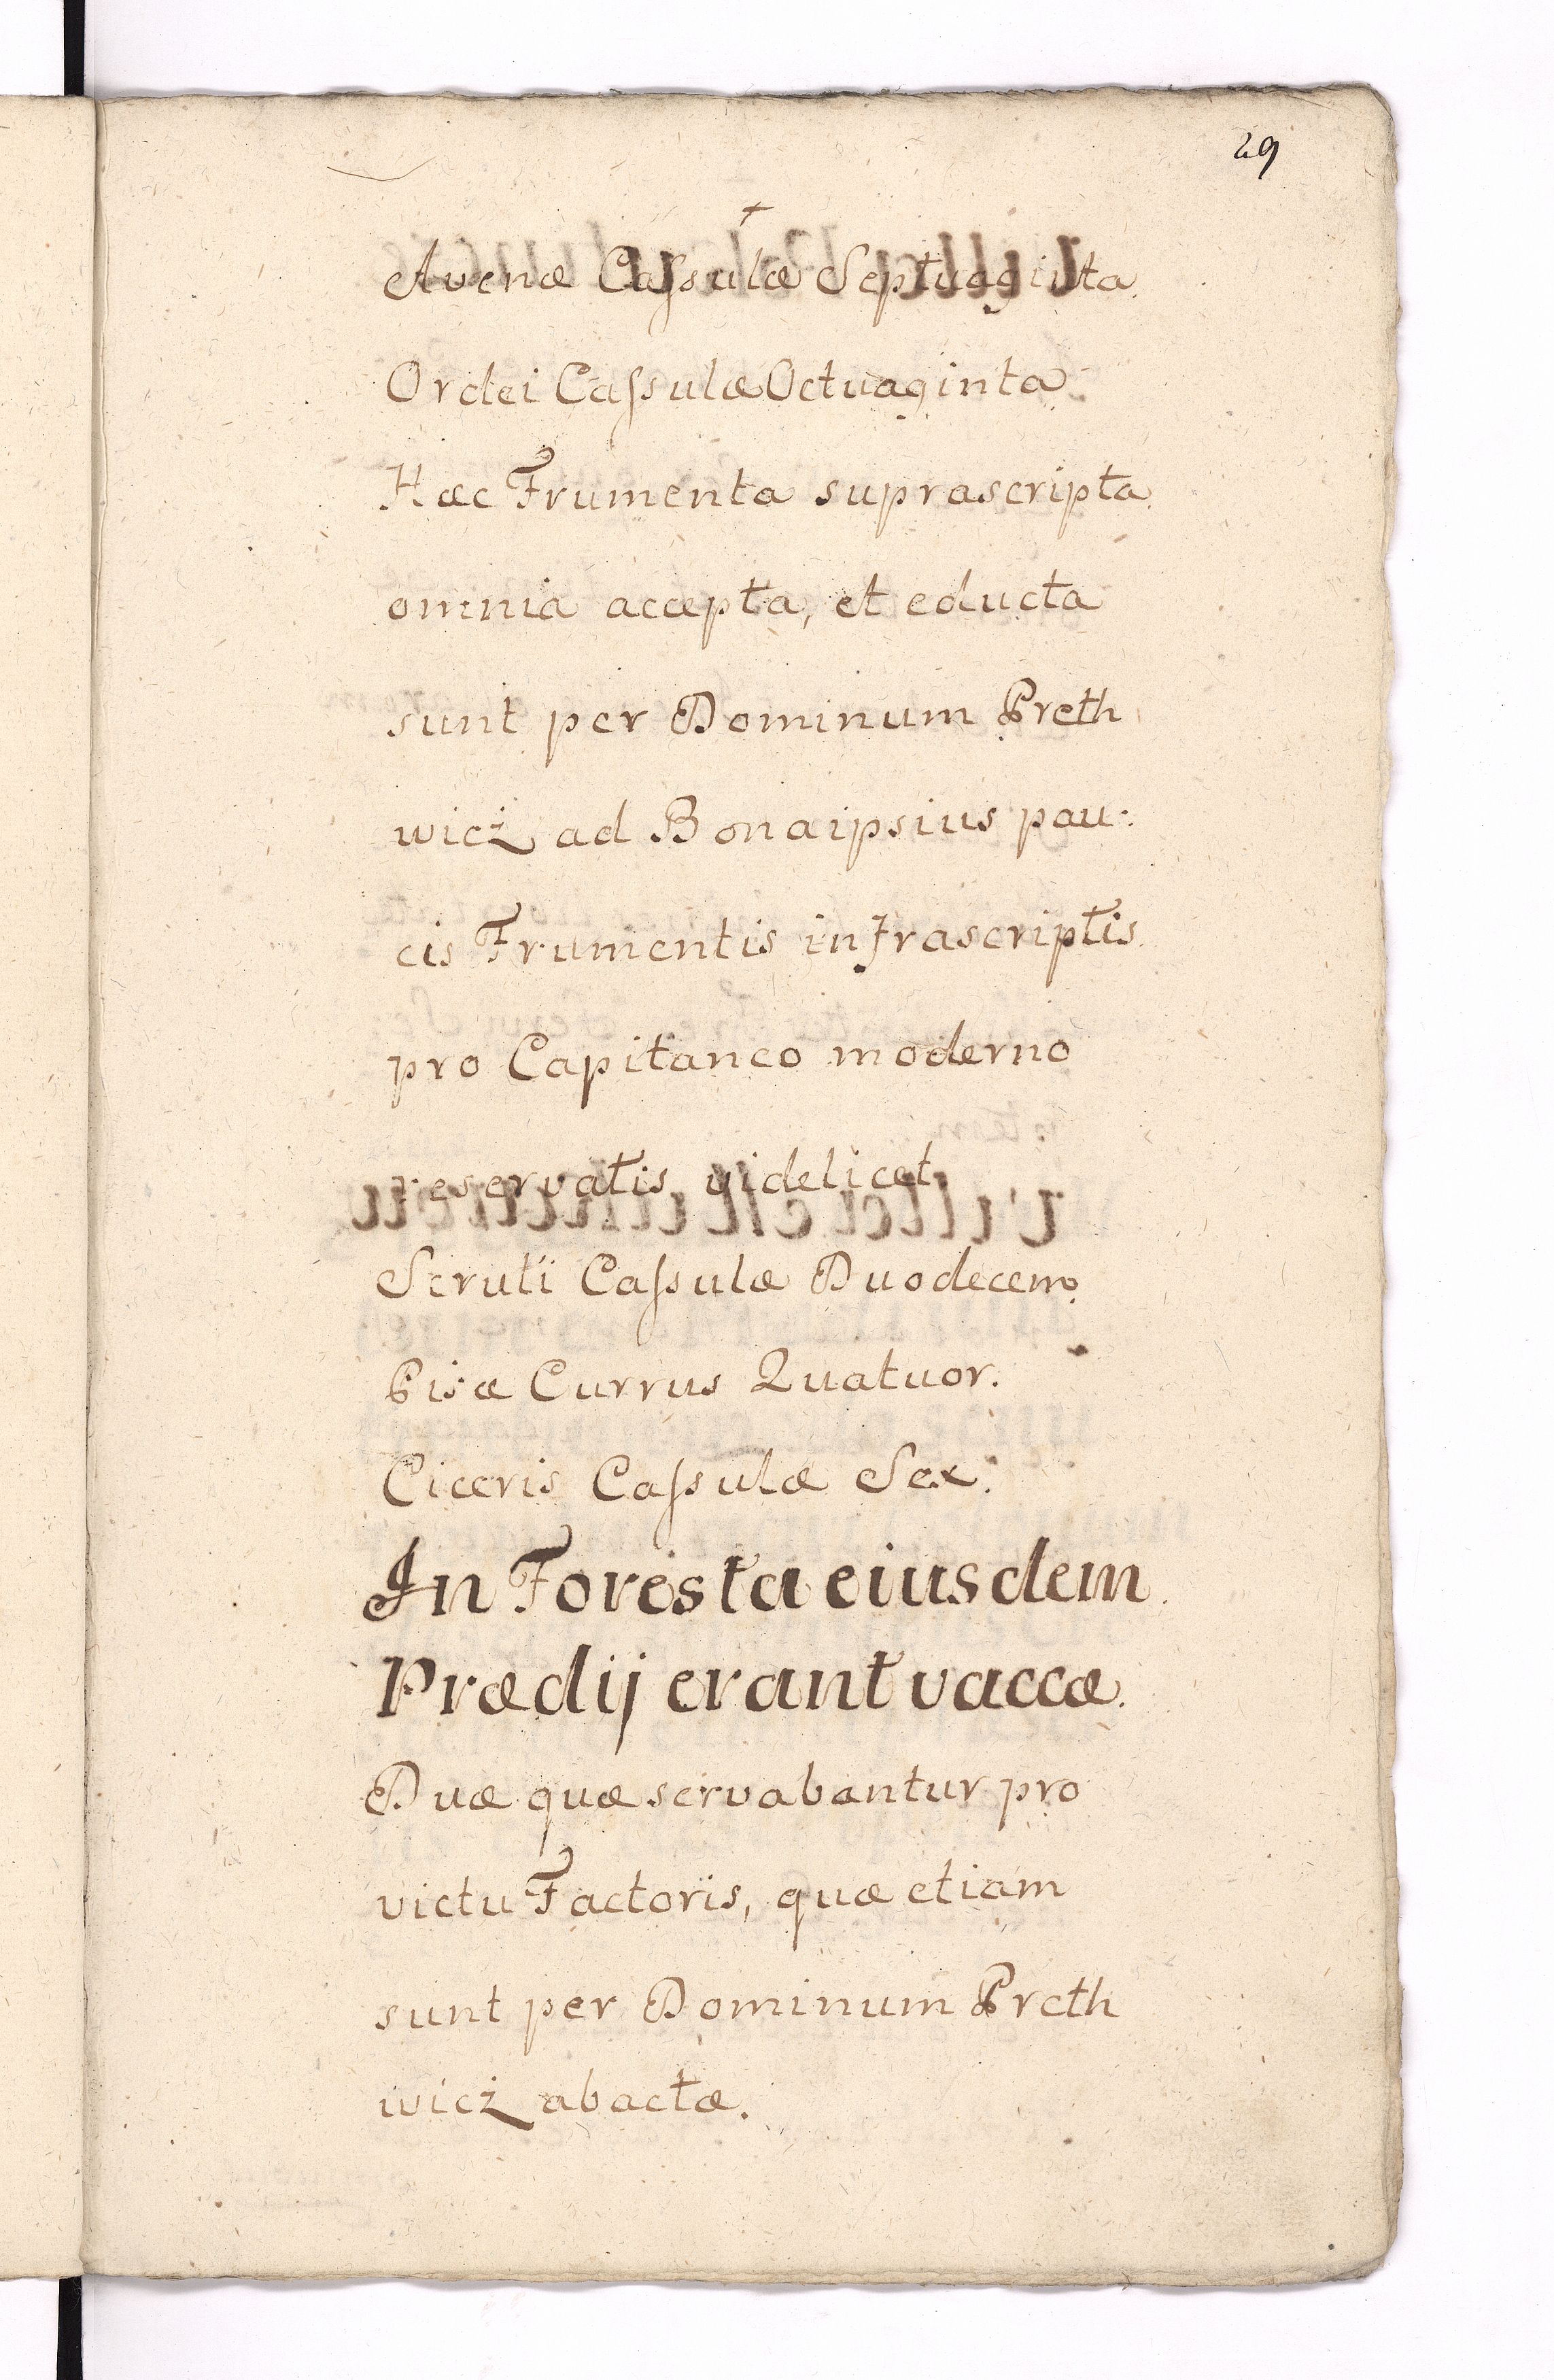 29
Avenæ Caſsulæ Septuaginta.
Ordei Caſsulæ Octuaginta.
Hæc Frumenta suprascripta
omnia accepta, et educta
sunt per Dominum Preth
wicż ad Bona ipsius pau:
cis Frumentis infrascriptis
pro Capitaneo moderno
reservatis videlicet
Scruti Caſsulæ Duodecem.
Pisæ Currus Quatuor.
Ciceris Caſsulæ Sex.
In Foresta eiusdem
Prædij erant vaccæ.
Duæ quæ servabantur pro
victu Factoris, quæ etiam
sunt per Dominum Preth
wicż abactæ.